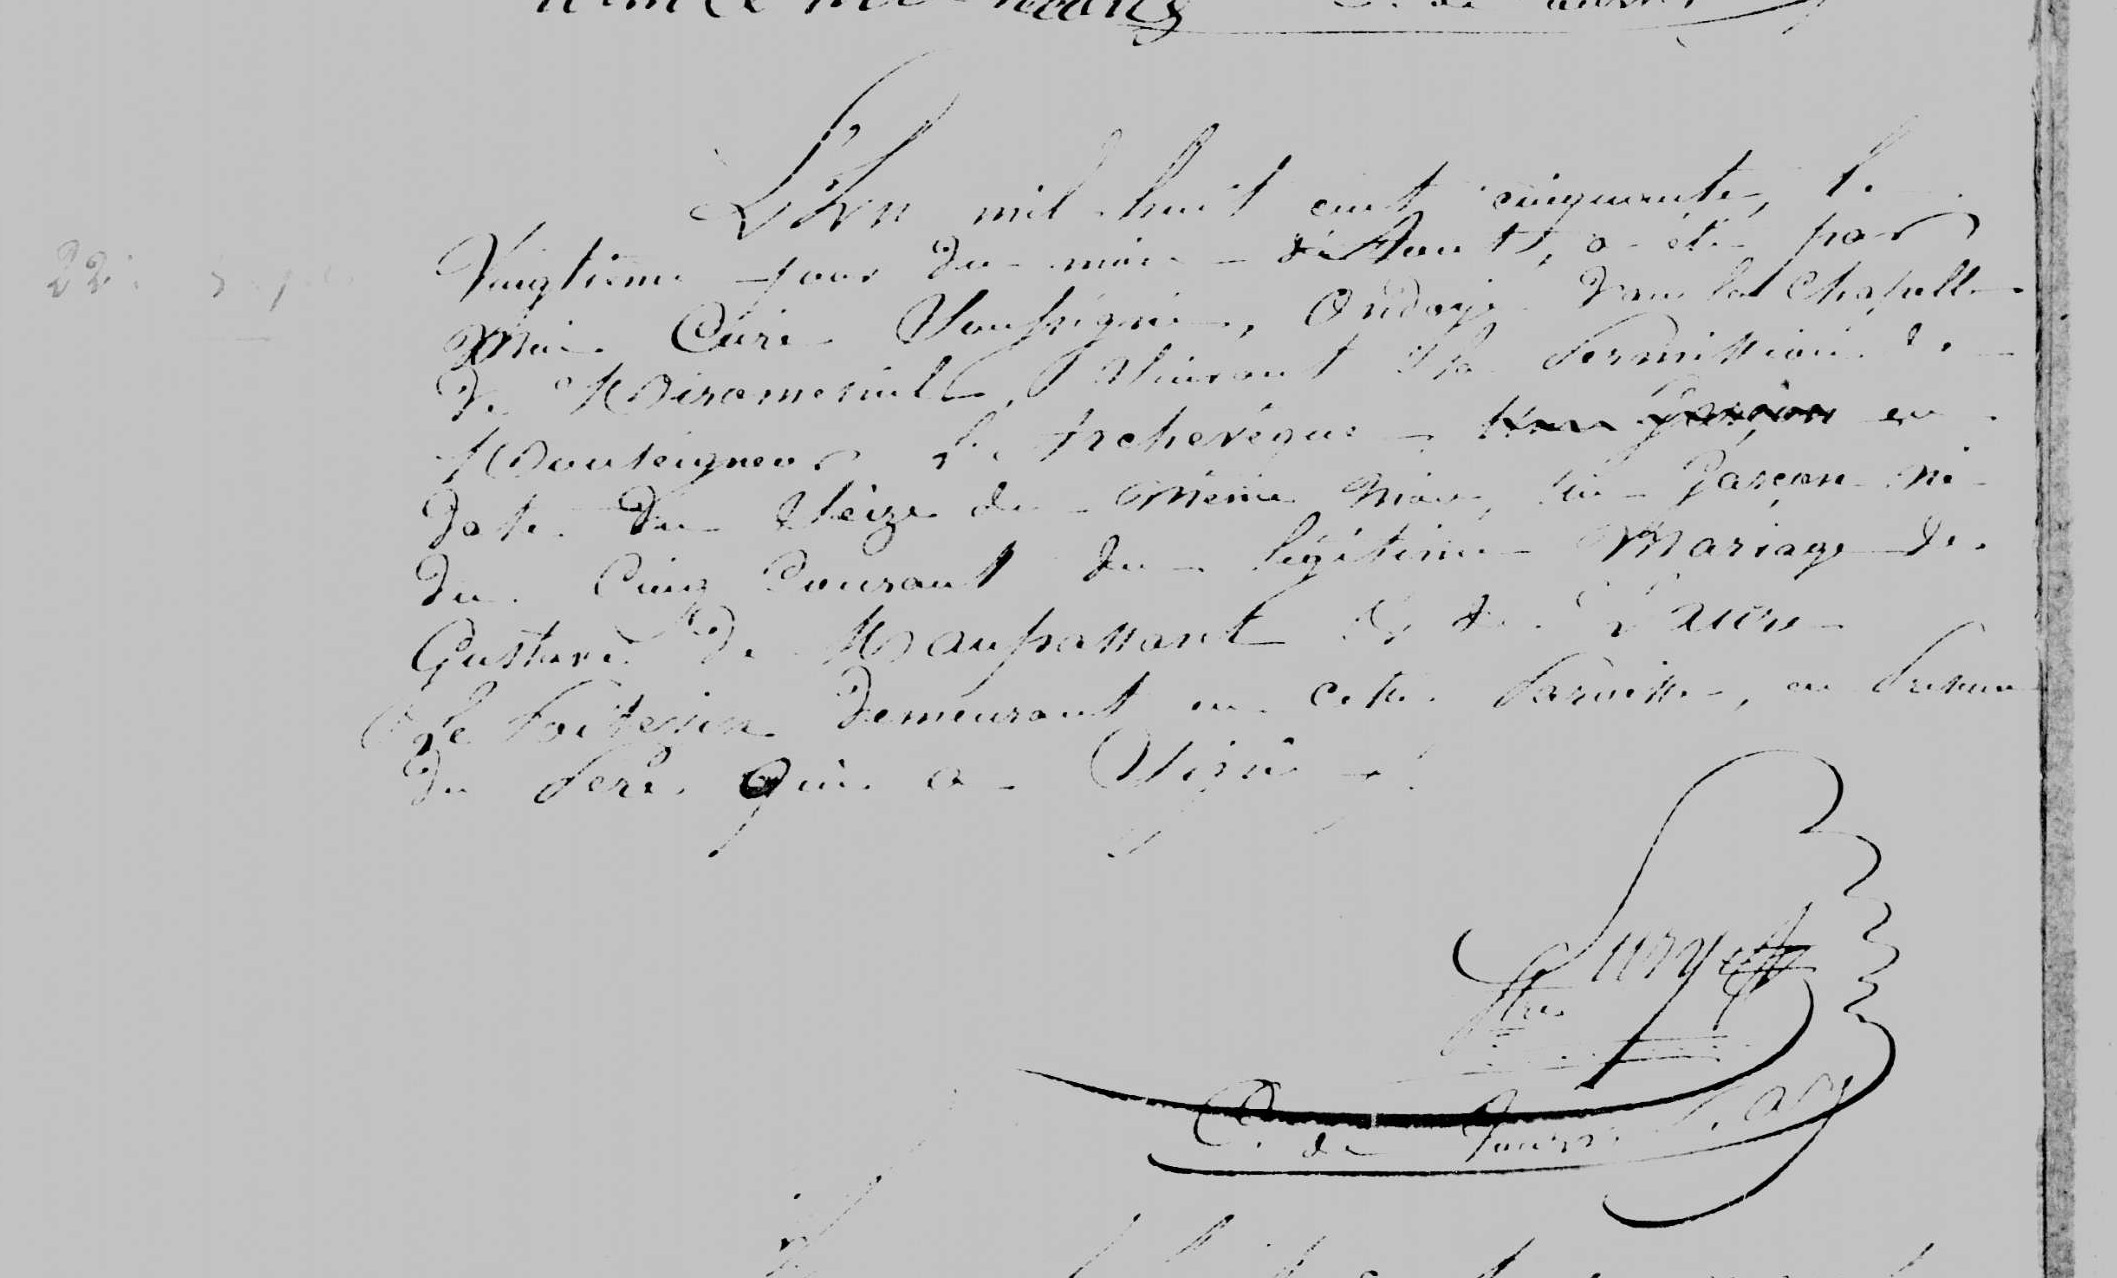 L'An mil huit cent cinquante, le
Vingtième jour du mois d'Aout, a été par
Moi Curé Soussigné, Ondoyé dans la Chapelle
de Miromesnil, Suivant la permission de
Monseigneur l'Archevêque un garçon en
date du Seize du même mois, un Garçon né
du Cinq Courant du légitime Mariage de
Gustave de Maupassant & de Laure
Le Poitevin demeurant en cette Paroisse, en présence
du Père qui a Signé
22.
Ptre
C. de